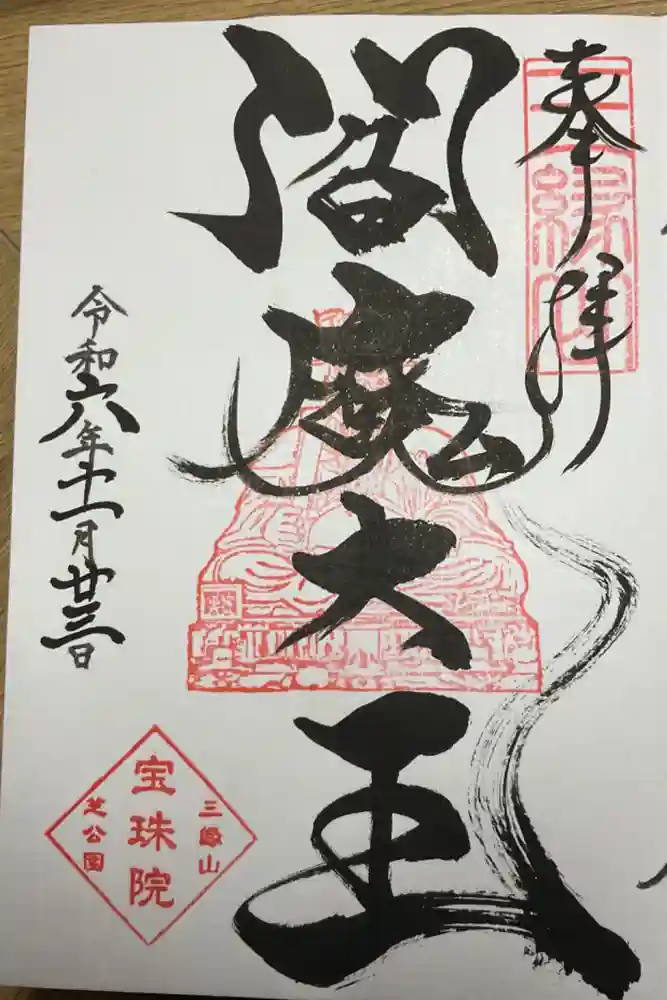 奉拝
閻魔大王
令和六年十一月廿三日
三縁山
宝珠院
芝公園